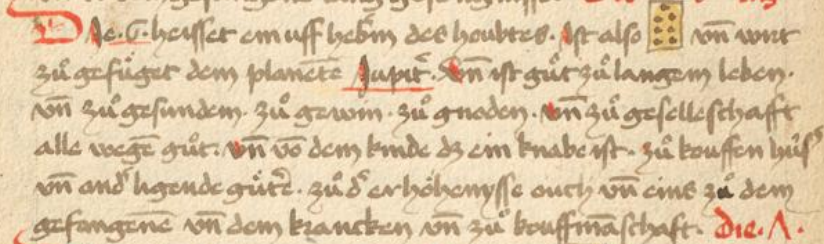 Die .G. heisset ein uff hebn̄ des houbtes. Ist also vn̄ wirt
zů gefüget dem planetē Jupit̄. Vn̄ ist gůt zů langem leben.
vn̄ zů gesundem. zů gewin. zů gnoden. vn̄ zů geselleschafft
alle wegē gůt. vn̄ vō dem kinde dz ein knabe ist. zů kouffen hüs
vn̄ and' ligende gütē. zů d' erhöhenysse ouch vn̄ eins zů dem
gefangenē vn̄ dem krancken vn̄ zů kouffmāschaft. Die. A.